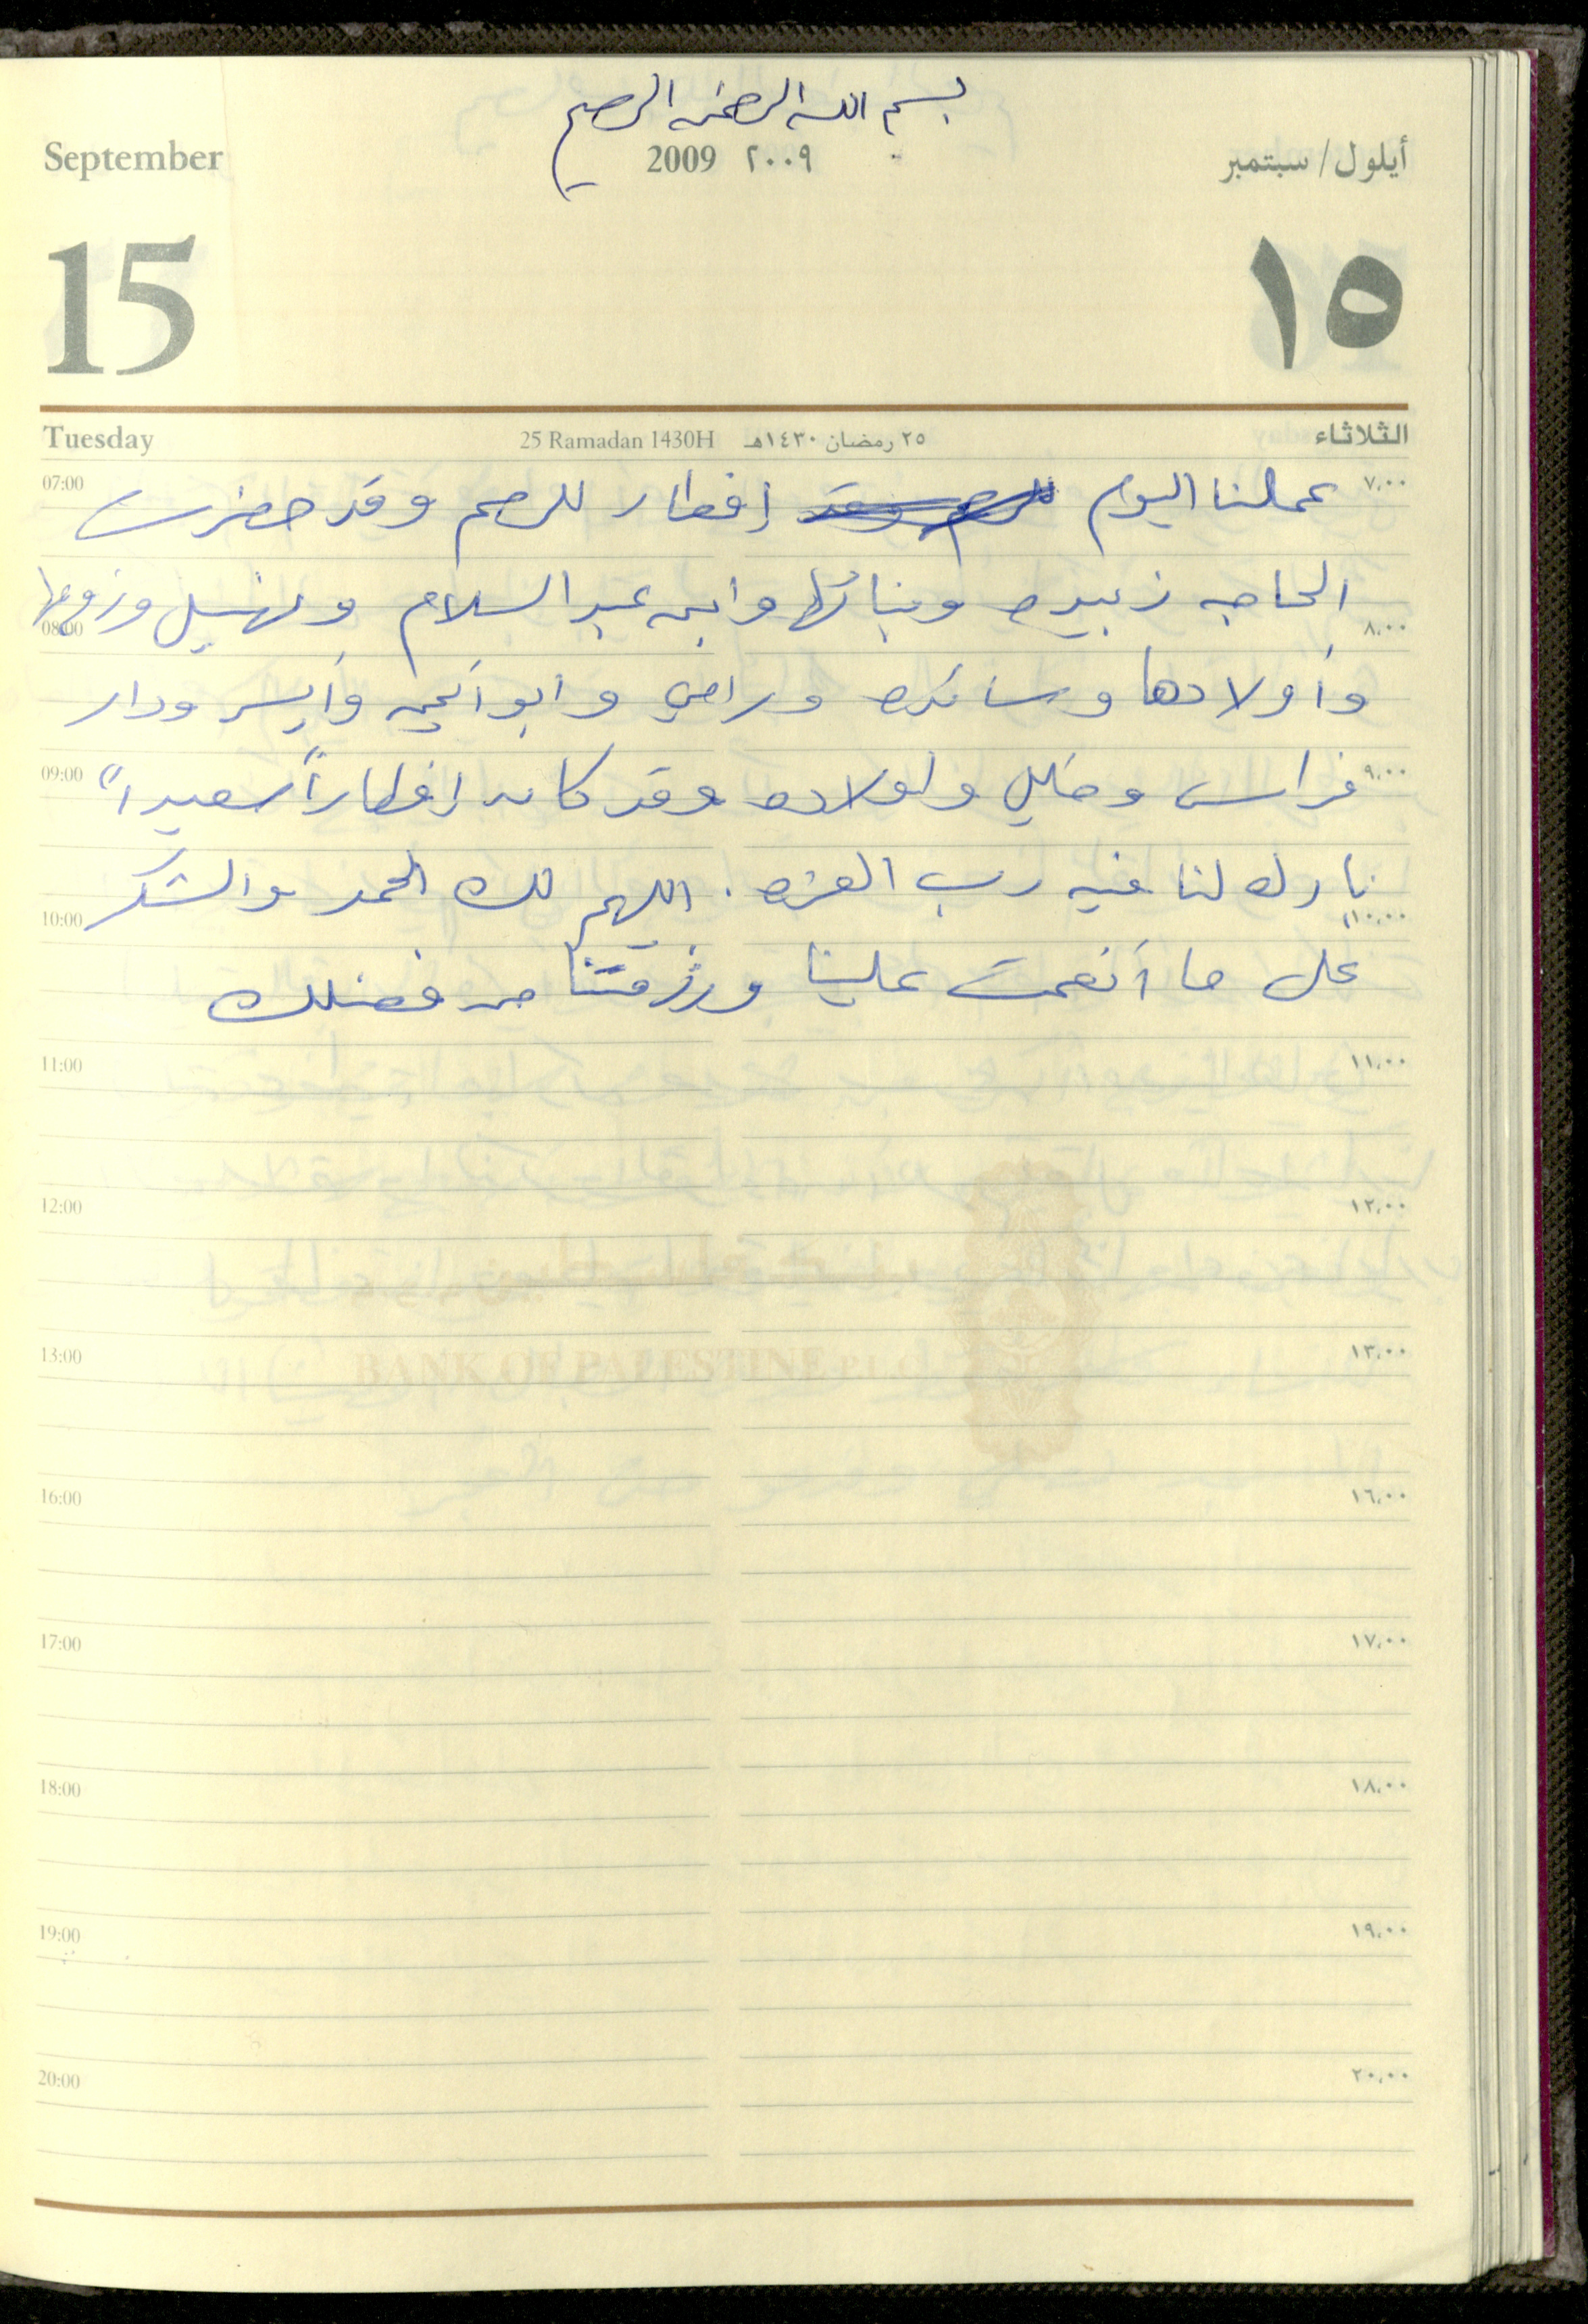 بسم الله الرحمن الرحيم
September 2009 ٢٠٠٩ أيلول/سبتمبر
15 ١٥
Tuesday 25 Ramadan 1430H ٢٥ رمضان ١٤٣٠هـ الثلاثاء
07:00 عملنا اليوم إفطار للرحم وقد حضرت ٧,٠٠
الحاجه زبيده وبناتها وابن عبد السلام ونهيل وزوجها
08:00 ٨,٠٠
وأولادها وسائده ورامي وابو أيمن وأيسر ودار
09:00 فراس وخليل واولاده وقد كان إفطاراً سعيداً ٩,٠٠
بارك لنا فيه رب العزه . اللهم لك الحمد والشكر
10:00 ١٠,٠٠
على ما أنعمت علينا ورزقتنا من فضلك
11:00 ١١,٠٠
12:00 ١٢,٠٠
13:00 ١٣,٠٠
BANK OF PALESTINE P.L.C
16:00 ١٦,٠٠
17:00 ١٧,٠٠
18:00 ١٨,٠٠
19:00 ١٩,٠٠
20:00 ٢٠,٠٠